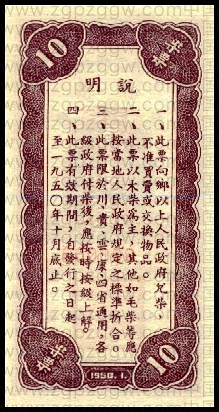 www.zgpzgw.com
10
柴票
說明
一、此票向鄉以上人民政府兌柴，
不准買賣或交換物品。
二、此票以木柴爲主，其他如毛柴等應
按當地人民政府規定之標準折合。
三、此票限於川、貴、雲、康四省通用，各
級政府付柴後，應按時按級上解。
四、此票有效期間，自發行之日起
至一九五〇年十月底止。
柴票
10
1950.1.